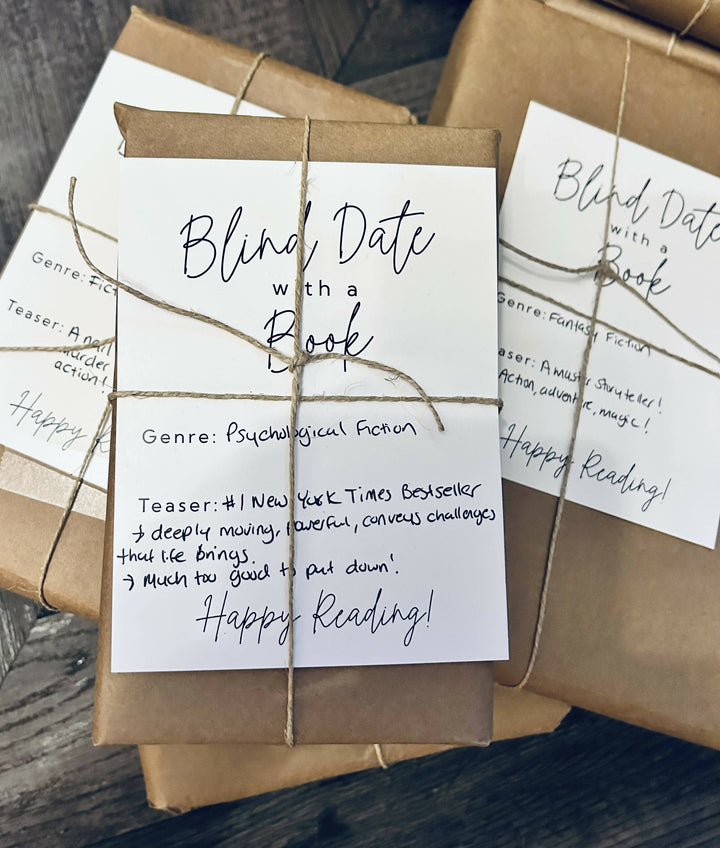 Blind Date
with a
Book
Genre: Psychological Fiction
Teaser: #1 New York Times Bestseller
→ deeply moving, powerful, conveys challenges
that life brings.
→ Much too good to put down!
Happy Reading!
Genre: Fict
Teaser: A
murder
action!
Happy R
Blind Date
with a
Book
Genre: Fantasy Fiction
aser: A master storyteller!
Action, adventure, magic!
Happy Reading!